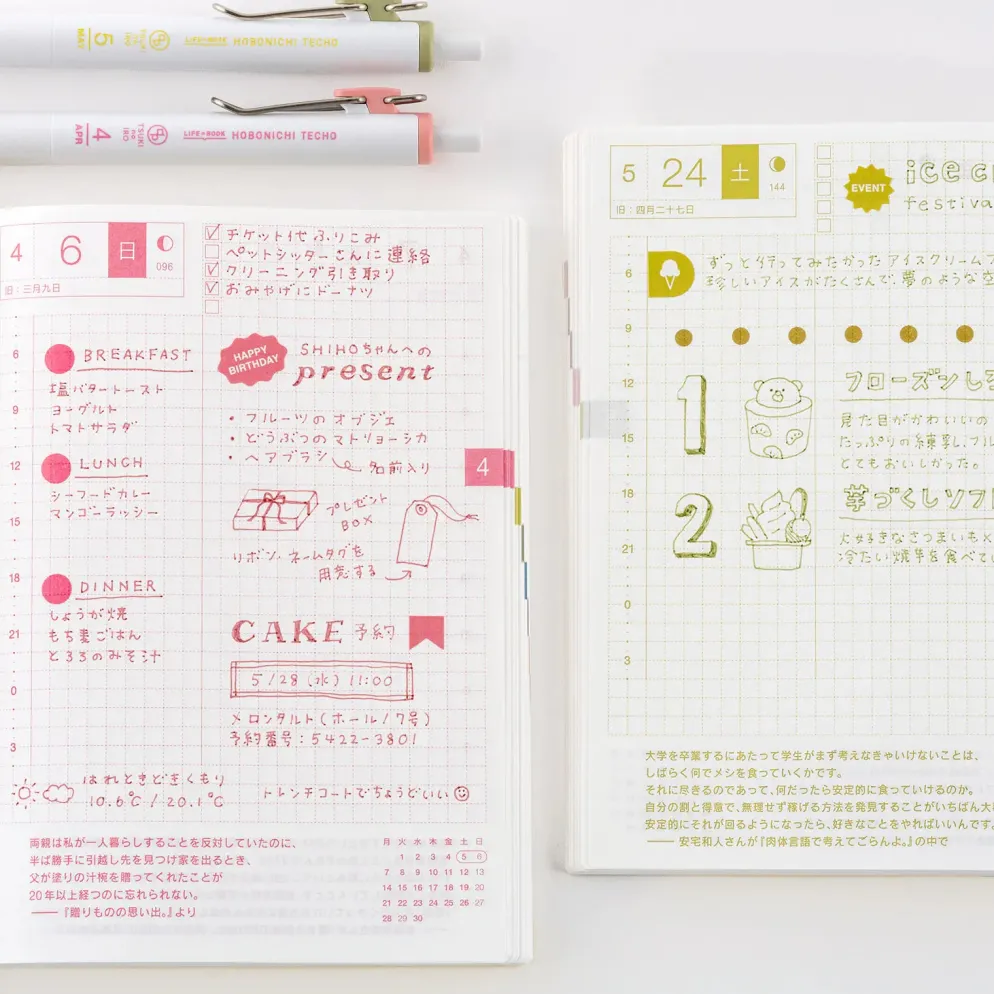 MAY
5
TSUKI
no
IRO
LIFE=NOTE HOBONICHI TECHO
APR
4
TSUKI
no
IRO
LIFE=BOOK HOBONICHI TECHO
4 6 日
096
旧:三月九日
チケット代ふりこみ
ペットシッターさんに連絡
クリーニング引き取り
おみやげにドーナツ
6
9
12
15
18
21
0
3
BREAKFAST
塩バタートースト
ヨーグルト
トマトサラダ
LUNCH
シーフードカレー
マンゴーラッシー
DINNER
しょうが焼
もち麦ごはん
とろろのみそ汁
HAPPY
BIRTHDAY
SHIHOちゃんへの
present
・フルーツのオブジェ
・どうぶつのマトリョーシカ
・ヘアブラシ
名前入り
プレゼント
BOX
リボン、ネームタグを
用意する
4
CAKE 予約
5/28(水)11:00
メロンタルト(ホール/7号)
予約番号:5422-3801
はれときどきくもり
10.6℃/20.1℃
トレンチコートでちょうどいい
両親は私が一人暮らしすることを反対していたのに、
半ば勝手に引越し先を見つけ家を出るとき、
父が塗りの汁椀を贈ってくれたことが
20年以上経つのに忘れられない。
──『贈りものの思い出。』より
月 火 水 木 金 土 日
1 2 3 4 5 6
7 8 9 10 11 12 13
14 15 16 17 18 19 20
21 22 23 24 25 26 27
28 29 30
5 24 土
144
旧:四月二十七日
EVENT
ice c
festiva
ずっと行ってみたかったアイスクリームフ
珍しいアイスがたくさんで、夢のような空
6
9
12
15
18
21
0
3
1
フローズンしろ
見た目がかわいいの
たっぷりの練乳、フル
とてもおいしかった。
2
芋づくしソフト
大好きなさつまいも×
冷たい焼芋を食べてい
大学を卒業するにあたって学生がまず考えなきゃいけないことは、
しばらく何でメシを食っていくかです。
それに尽きるのであって、何だったら安定的に食っていけるのか。
自分の割と得意で、無理せず稼げる方法を発見することがいちばん大
安定的にそれが回るようになったら、好きなことをやればいいんです。
── 安宅和人さんが『肉体言語で考えてごらんよ。』の中で